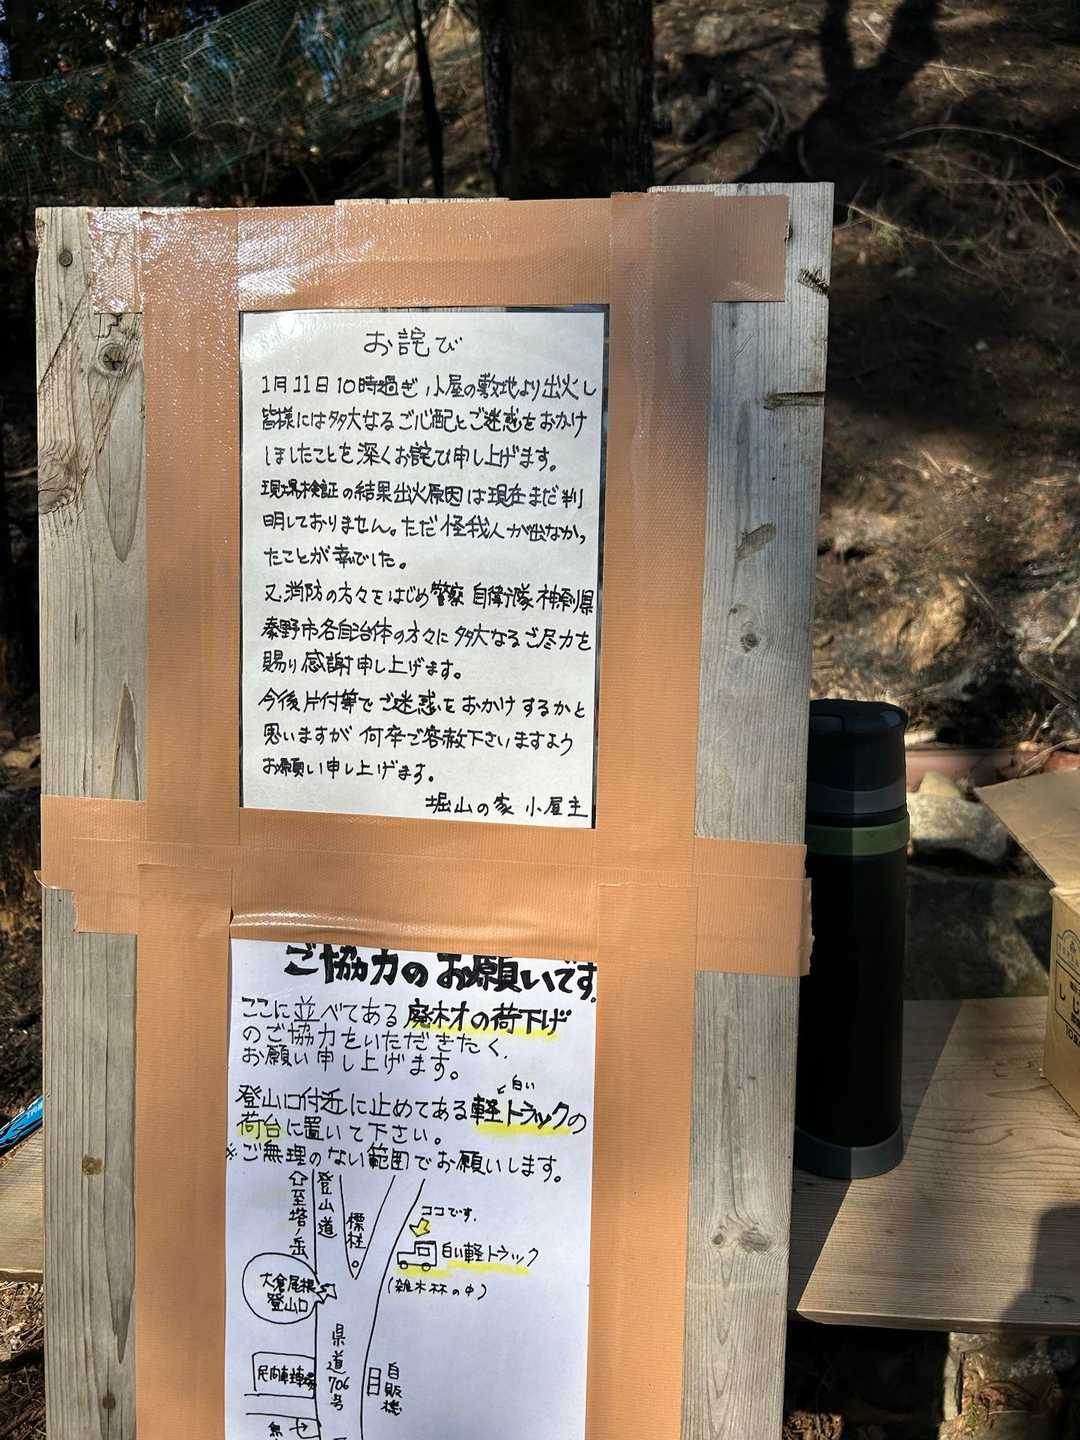 お詫び
1月11日10時過ぎ 小屋の敷地より出火し
皆様には多大なるご心配とご迷惑をおかけ
しましたことを深くお詫び申し上げます。
現場検証の結果出火原因は現在まだ判
明しておりません。ただ怪我人が出なかっ
たことが幸でした。
又消防の方々をはじめ警察 自衛隊 神奈川県
秦野市各自治体の方々に多大なるご尽力を
賜り感謝申し上げます。
今後片付等でご迷惑をおかけするかと
思いますが 何卒ご容赦下さいますよう
お願い申し上げます。
堀山の家 小屋主
ご協力のお願いです。
ここに並べてある廃材の荷下げ
のご協力をいただきたく、
お願い申し上げます。
白い
登山口付近に止めてある軽トラックの
荷台に置いて下さい。
※ご無理のない範囲でお願いします。
至塔ノ岳
登山道
標柱
ココです。
白い軽トラック
(雑木林の中)
大倉尾根
登山口
県道706号
民間駐車場
自販機